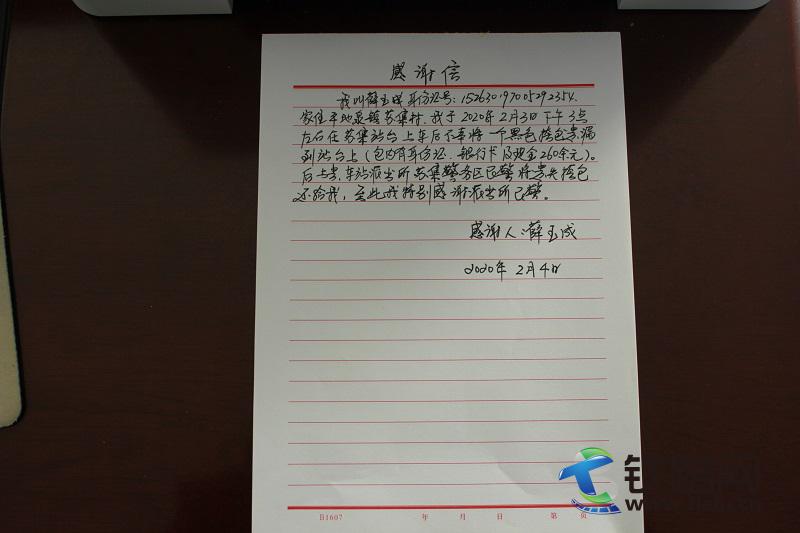 感谢信
我叫薛玉成 身份证号:152630197005292354.
家住平地泉镇苏集村.我于2020年2月3日下午3点
左右在苏集站台上车后不幸将一个黑色挎包丢漏
到站台上(包内有身份证、银行卡及现金260余元)。
后土贵乌站派出所苏集警务区民警将丢失挎包
还给我,至此我特别感谢派出所民警。
感谢人:薛玉成
2020年2月4日
B1607 年 月 日 第 页